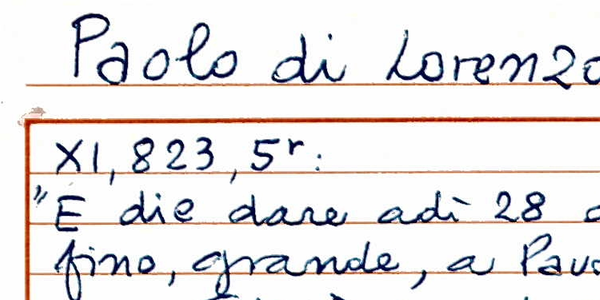 Paolo di Lorenzo
XI, 823, 5r:
"E die dare adì 28
fino, grande, a